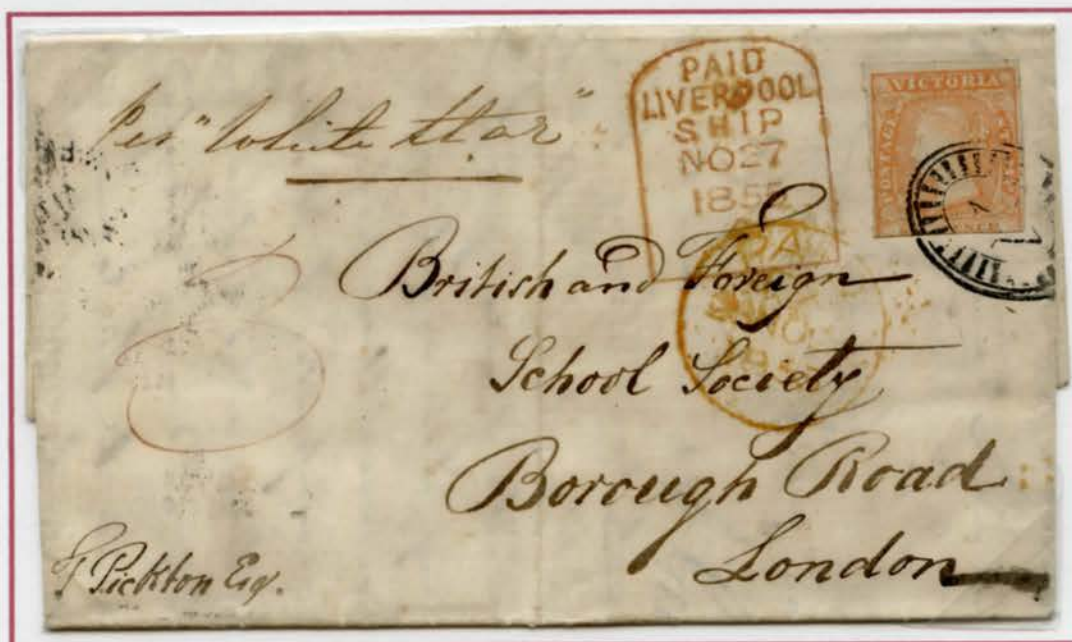 Per "White Star"
PAID
LIVERPOOL
SHIP
NO 27
1855
VICTORIA
POSTAGE
British and Foreign
School Society
Borough Road
London
Pickton Esq.